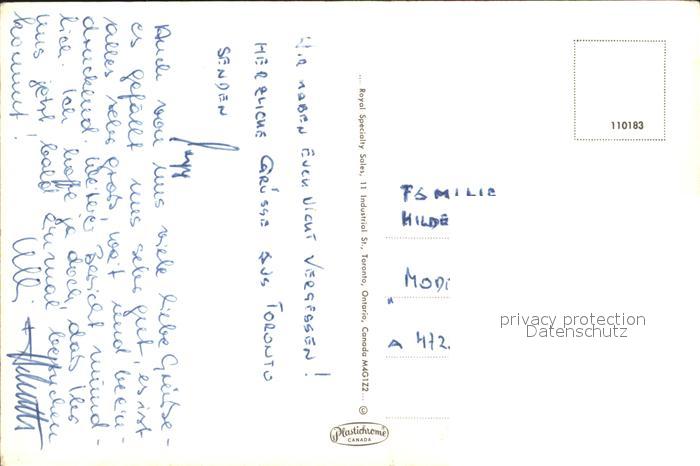 WIR HABEN EUCH NICHT VERGESSEN!
HERZLICHE GRÜSSE AUS TORONTO
SENDEN
Auch von uns viele liebe Grüße-
es gefällt uns sehr gut, es ist
alles sehr groß, weit und beein-
druckend. Weiterer Bericht münd-
lich. Ich hoffe ja doch, daß Ihr
uns jetzt bald einmal besuchen
kommt!
Ulli +
... Royal Specialty Sales, 11 Industrial St., Toronto, Ontario, Canada M4G1Z2... ©
Plastichrome
CANADA
110183
FAMILIE
HILDE
MODI
A 472.
privacy protection
Datenschutz